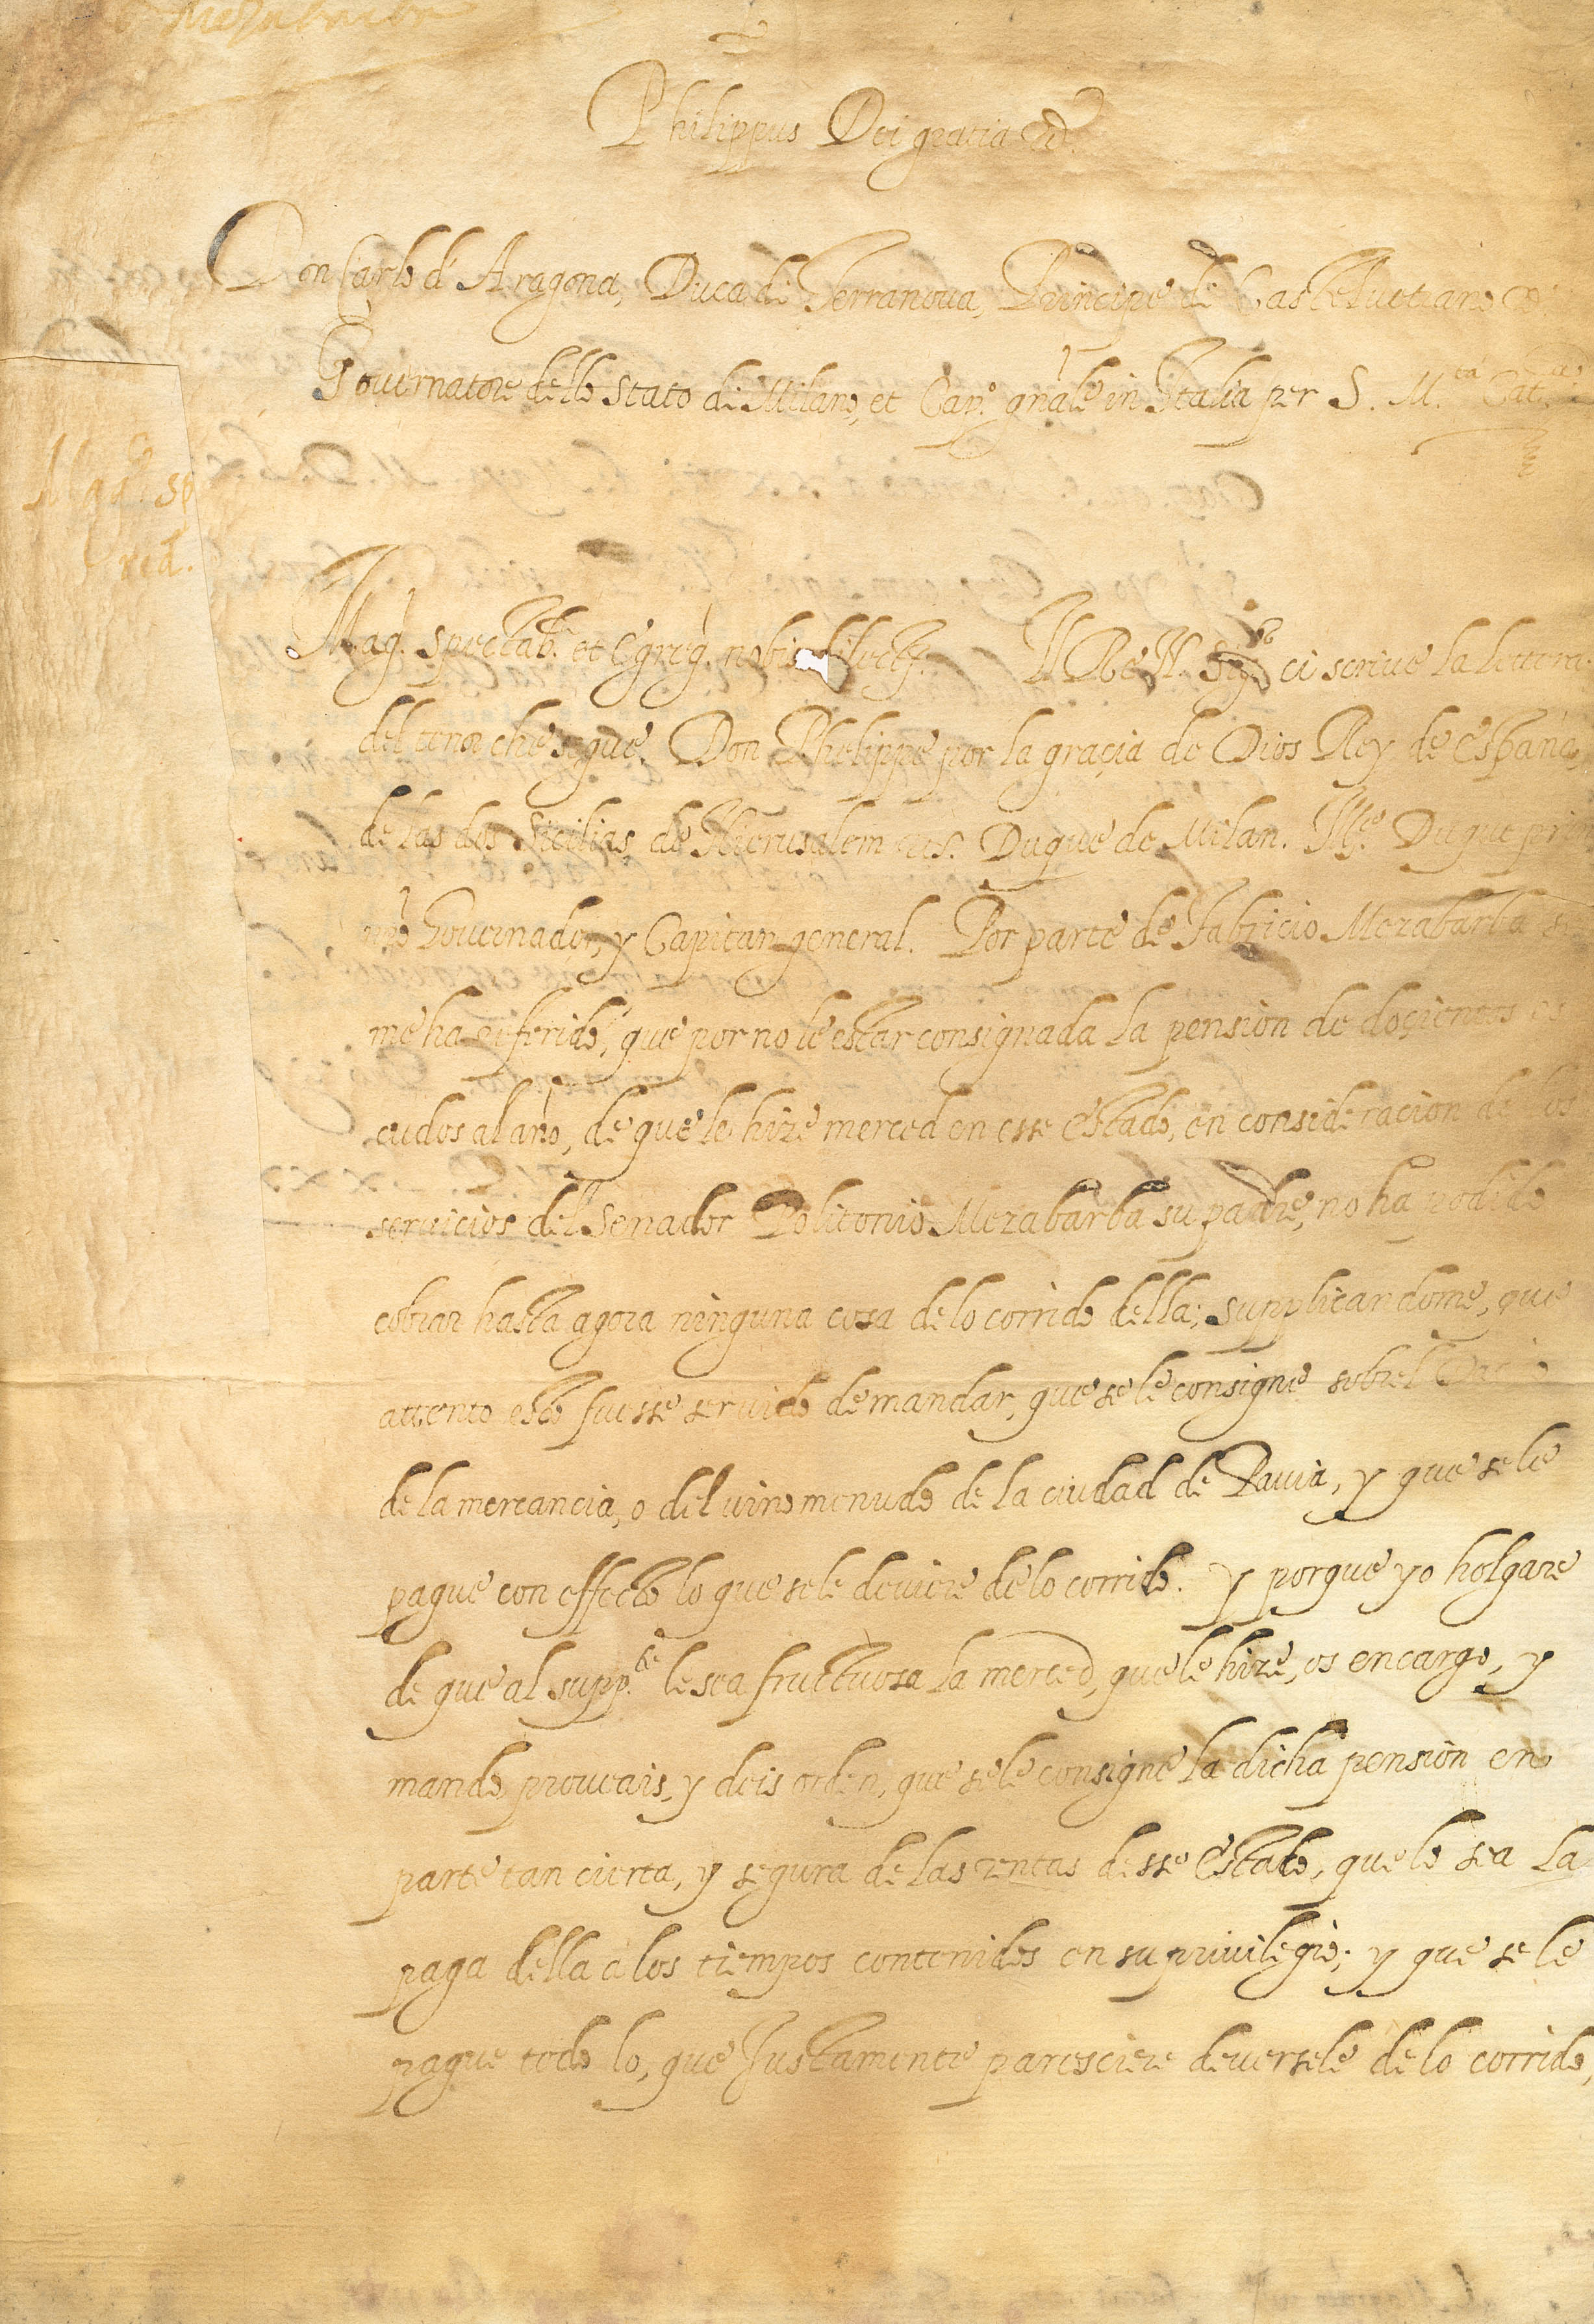 Mezabarba
Philippus Dei gratia &c.
Don Carlo d'Aragona, Duca di Terranoua, Principe de Casteluetrano &c.
Gouernatore dello Stato di Milano, et Cap.º gñale in Italia per S. M.ta Cat.ca
Mag. spectab. et Egreg. nobis dilect. Il Re N. Sig.re ci scriue la lettera
del tenor che segue. Don Phelippe por la graçia de Dios Rey de España,
de las dos Sicilias, de Hierusalem &c. Duque de Milan. Ill.e Duque pri
nr̃o Gouernador, y Capitan general. Por parte de Fabricio Mezabarba se
me ha referido, que por no le estar consignada la pension de doçientos es
cudos al año, de que le hize merced en esse Estado, en consideracion de los
seruicios del Senador Politonio Mezabarba su padre, no ha podido
cobrar hasta agora ninguna cosa de lo corrido della; supplicandome, que
attento esto fuesse seruido de mandar, que se le consigne sobrel
de la mercancia, o del vino menudo de la ciudad de Pauia, y que se le
pague con effecto lo que se le deuiere de lo corrido. Y porque yo holgare
de que al supp.te le sea fructuosa la merced, que le hize, os encargo, y
mando, proueais, y deis orden, que se le consigne la dicha pension en
parte tan cierta, y segura de las rentas desse Estado, que lo sea la
paga della a los tiempos contenidos en su priuilegio; y que se le
pague todo lo, que Justamente paresciere deuersele de lo corrido,